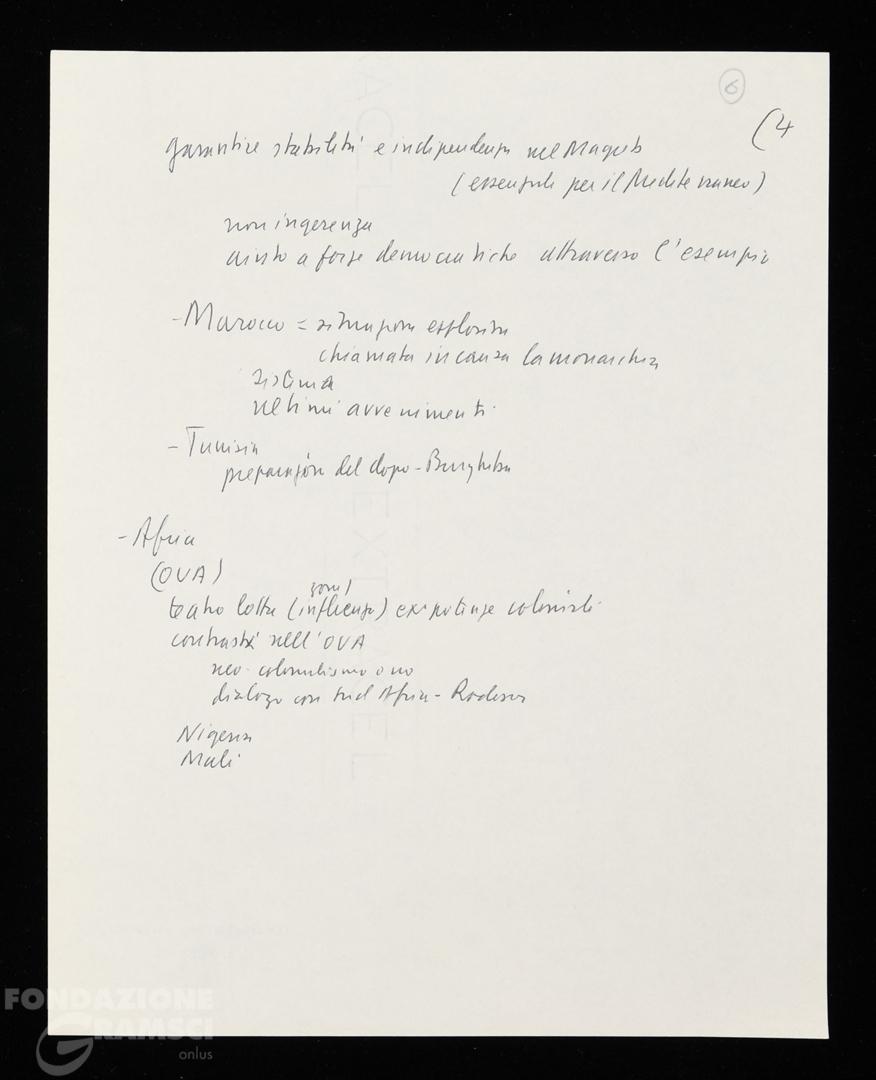 6
(4
garantire stabilità e indipendenza nel Magreb
(essenziale per il Mediterraneo)
non ingerenza
aiuto a forze democratiche attraverso l'esempio
- Marocco = situazione esplosiva
chiamata in causa la monarchia
sistema
ultimi avvenimenti
- Tunisia
preparazione del dopo-Burghiba
- Africa
(OUA)
zone)
teatro lotta (influenza) ex potenze coloniali
contrasti nell'OUA
neo-colonialismo o no
dialogo con Sud Africa - Rodesia
Nigeria
Mali
FONDAZIONE
GRAMSCI
onlus